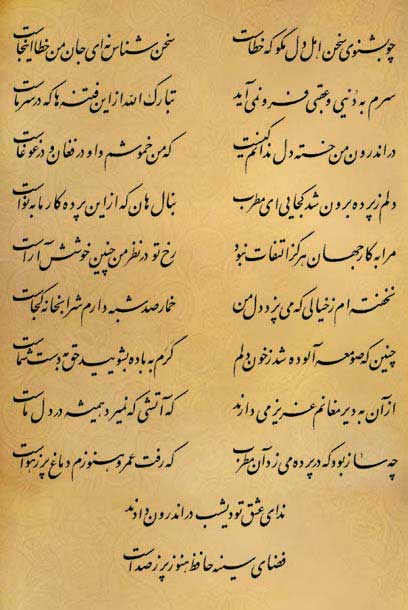 چو بشنوی سخن اهل دل مگو که خطاست سخن شناس نه‌ای جان من خطا اینجاست
سرم به دنیی و عقبی فرو نمی‌آید تبارک الله از این فتنه‌ها که در سر ماست
در اندرون من خسته دل ندانم کیست که من خموشم و او در فغان و در غوغاست
دلم ز پرده برون شد کجایی ای مطرب بنال هان که از این پرده کار ما به نواست
مرا به کار جهان هرگز التفات نبود رخ تو در نظر من چنین خوشش آراست
نخفته‌ام ز خیالی که می‌پزد دل من خمار صد شبه دارم شرابخانه کجاست
چنین که صومعه آلوده شد ز خون دلم گرم به باده بشویید حق به دست شماست
از آن به دیر مغانم عزیز می‌دارند که آتشی که نمیرد همیشه در دل ماست
چه ساز بود که در پرده می‌زد آن مطرب که رفت عمر و هنوزم دماغ پر ز هواست
ندای عشق تو دیشب در اندرون دادند
فضای سینه حافظ هنوز پر ز صداست